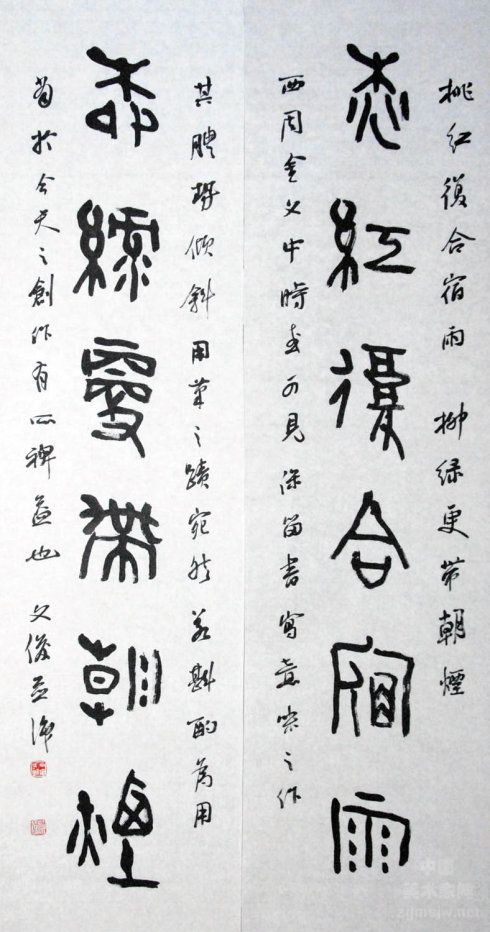 桃紅復合宿雨 柳緑更帶朝煙
桃紅復合宿雨
西周金文中時可見保留書寫意味之作
其體勢傾斜用筆之蹟宛然若斟酌為用
柳綠更帶朝煙
於今天之創作有所裨益也 文俊並識
中国
美术家网